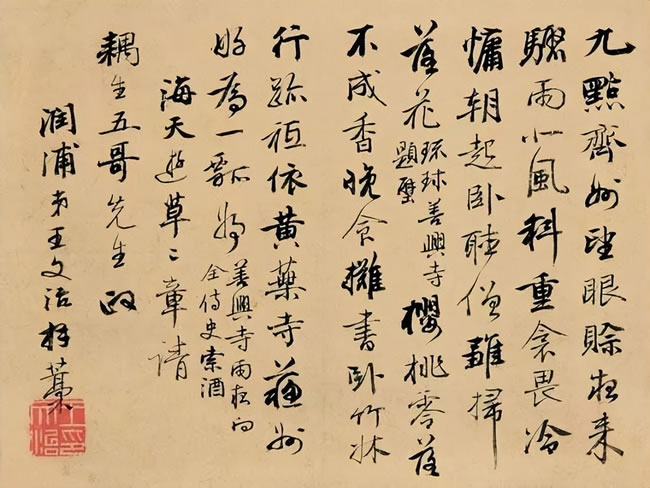 九點齊州望眼賒夜来
驟雨小風斜重衾畏冷
慵朝起卧聽僧雛掃
落花 琉球善興寺題壁 櫻桃零落
不成香晚食攤書卧竹牀
行跡祗依黄蘗寺蘓州
好為一瓢將 善興寺雨夜向全侍史索酒
海天遊草二章請
耦生五哥先生政
潤浦弟王文治拜藁